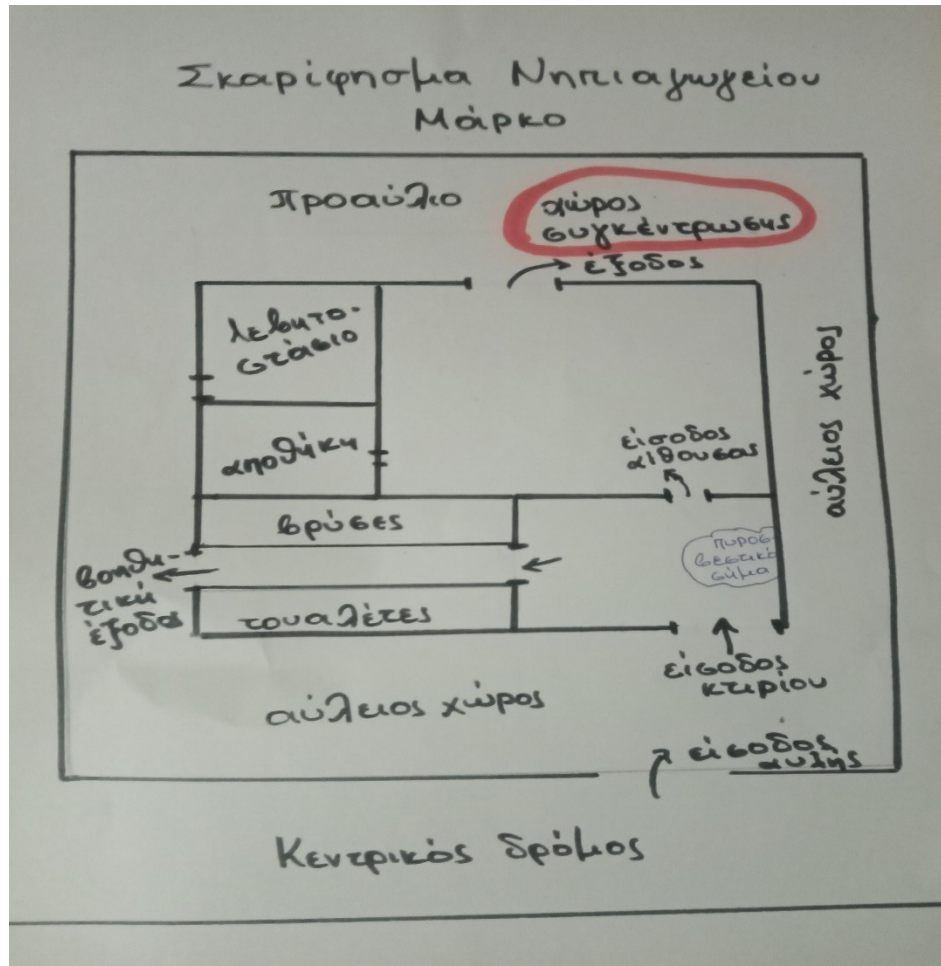 Σκαρίφησμα Νηπιαγωγείου
Μάρκο
προαύλιο
χώρος
συγκέντρωσης
έξοδος
λεβητο-
στάσιο
αύλειος χώρος
αποθήκη
είσοδος
αίθουσας
βρύσες
πυροσ-
βεστικό
σήμα
βοηθη-
τική
έξοδος
τουαλέτες
είσοδος
κτιρίου
αύλειος χώρος
είσοδος
αυλής
Κεντρικός δρόμος